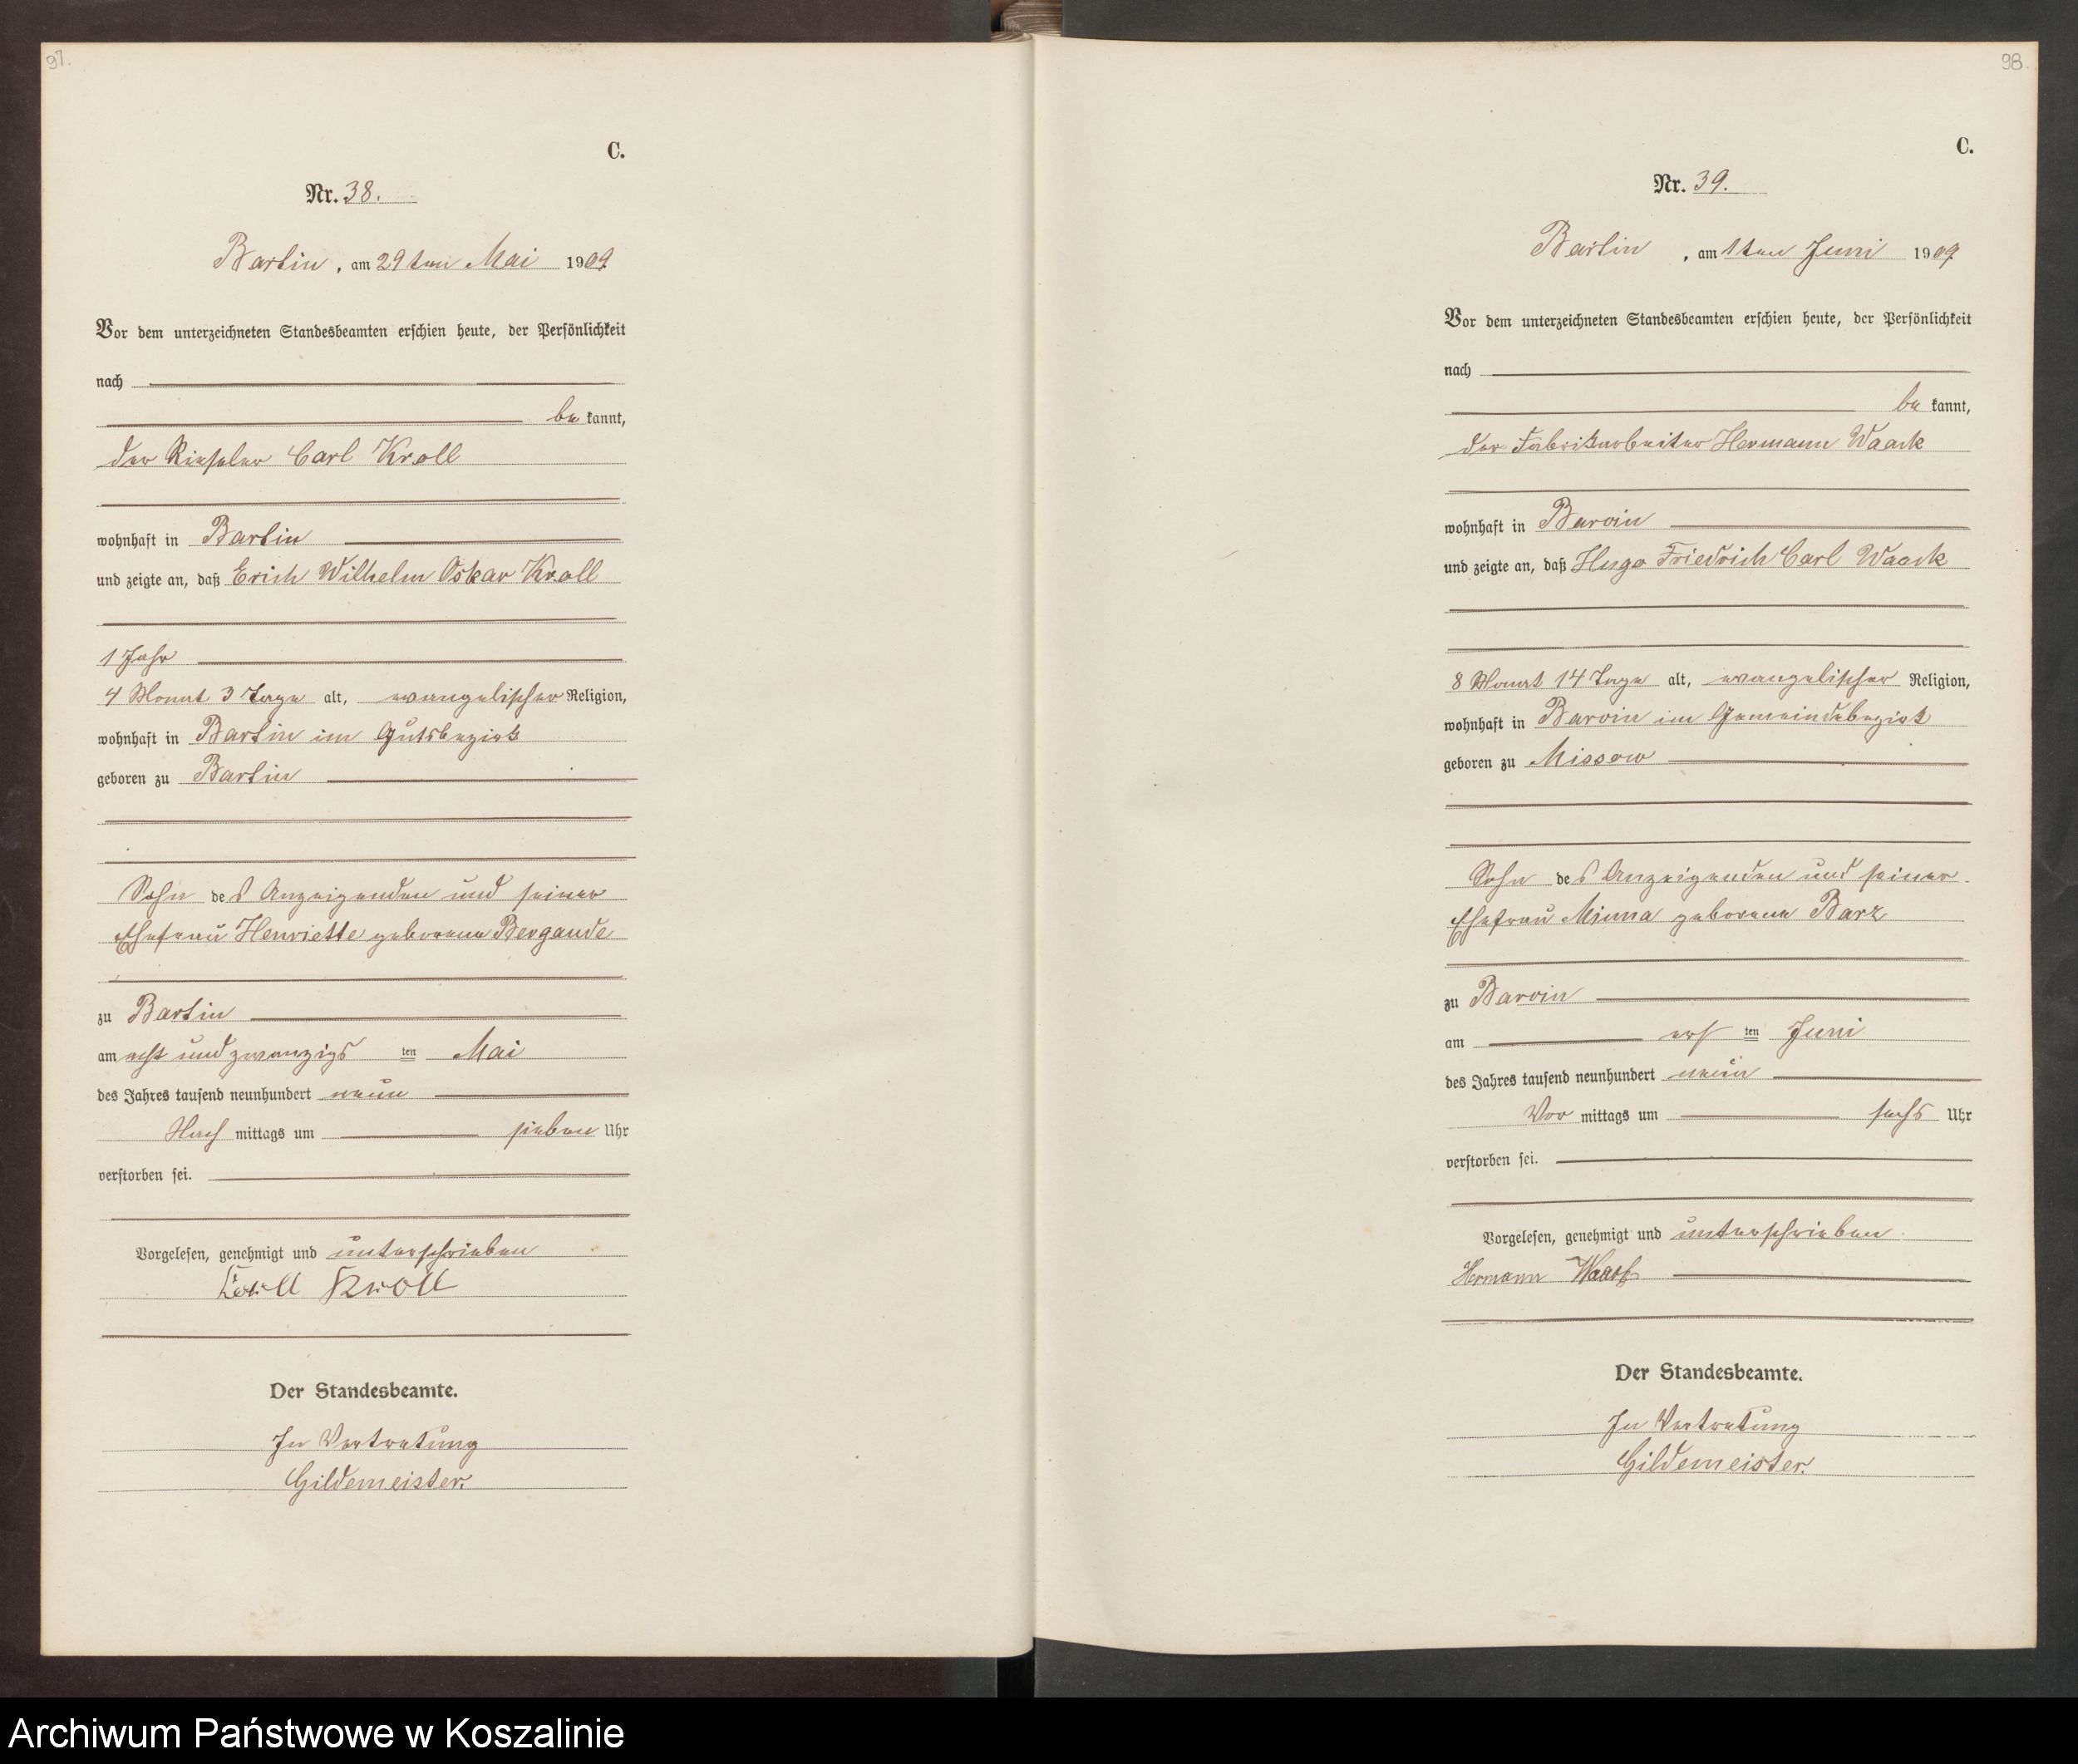 97.
C.
Nr. 38.
Bartin, am 29ten Mai 1909
Vor dem unterzeichneten Standesbeamten erschien heute, der Persönlichkeit
nach
be kannt,
der Rieseler Carl Kroll
wohnhaft in Bartin
und zeigte an, daß Erich Wilhelm Oskar Kroll
1 Jahr
4 Monat 3 Tage alt, evangelischer Religion,
wohnhaft in Bartin im Gutsbezirk
geboren zu Bartin
Sohn des Anzeigenden und seiner
Ehefrau Henriette geborene Bergande
zu Bartin
am acht und zwanzigs ten Mai
des Jahres tausend neunhundert neun
Nach mittags um sieben Uhr
verstorben sei.
Vorgelesen, genehmigt und unterschrieben
Karll Kroll
Der Standesbeamte.
In Vertretung
Gildemeister.
98.
C.
Nr. 39.
Bartin, am 1ten Juni 1909
Vor dem unterzeichneten Standesbeamten erschien heute, der Persönlichkeit
nach
be kannt,
der Fabrikarbeiter Hermann Waack
wohnhaft in Barvin
und zeigte an, daß Hugo Friedrich Carl Waack
8 Monat 14 Tage alt, evangelischer Religion,
wohnhaft in Barvin im Gemeindebezirk
geboren zu Missow
Sohn des Anzeigenden und seiner
Ehefrau Minna geborene Barz
zu Barvin
am ers ten Juni
des Jahres tausend neunhundert neun
Vor mittags um sechs Uhr
verstorben sei.
Vorgelesen, genehmigt und unterschrieben.
Hermann Waack
Der Standesbeamte.
In Vertretung
Gildemeister.
Archiwum Państwowe w Koszalinie